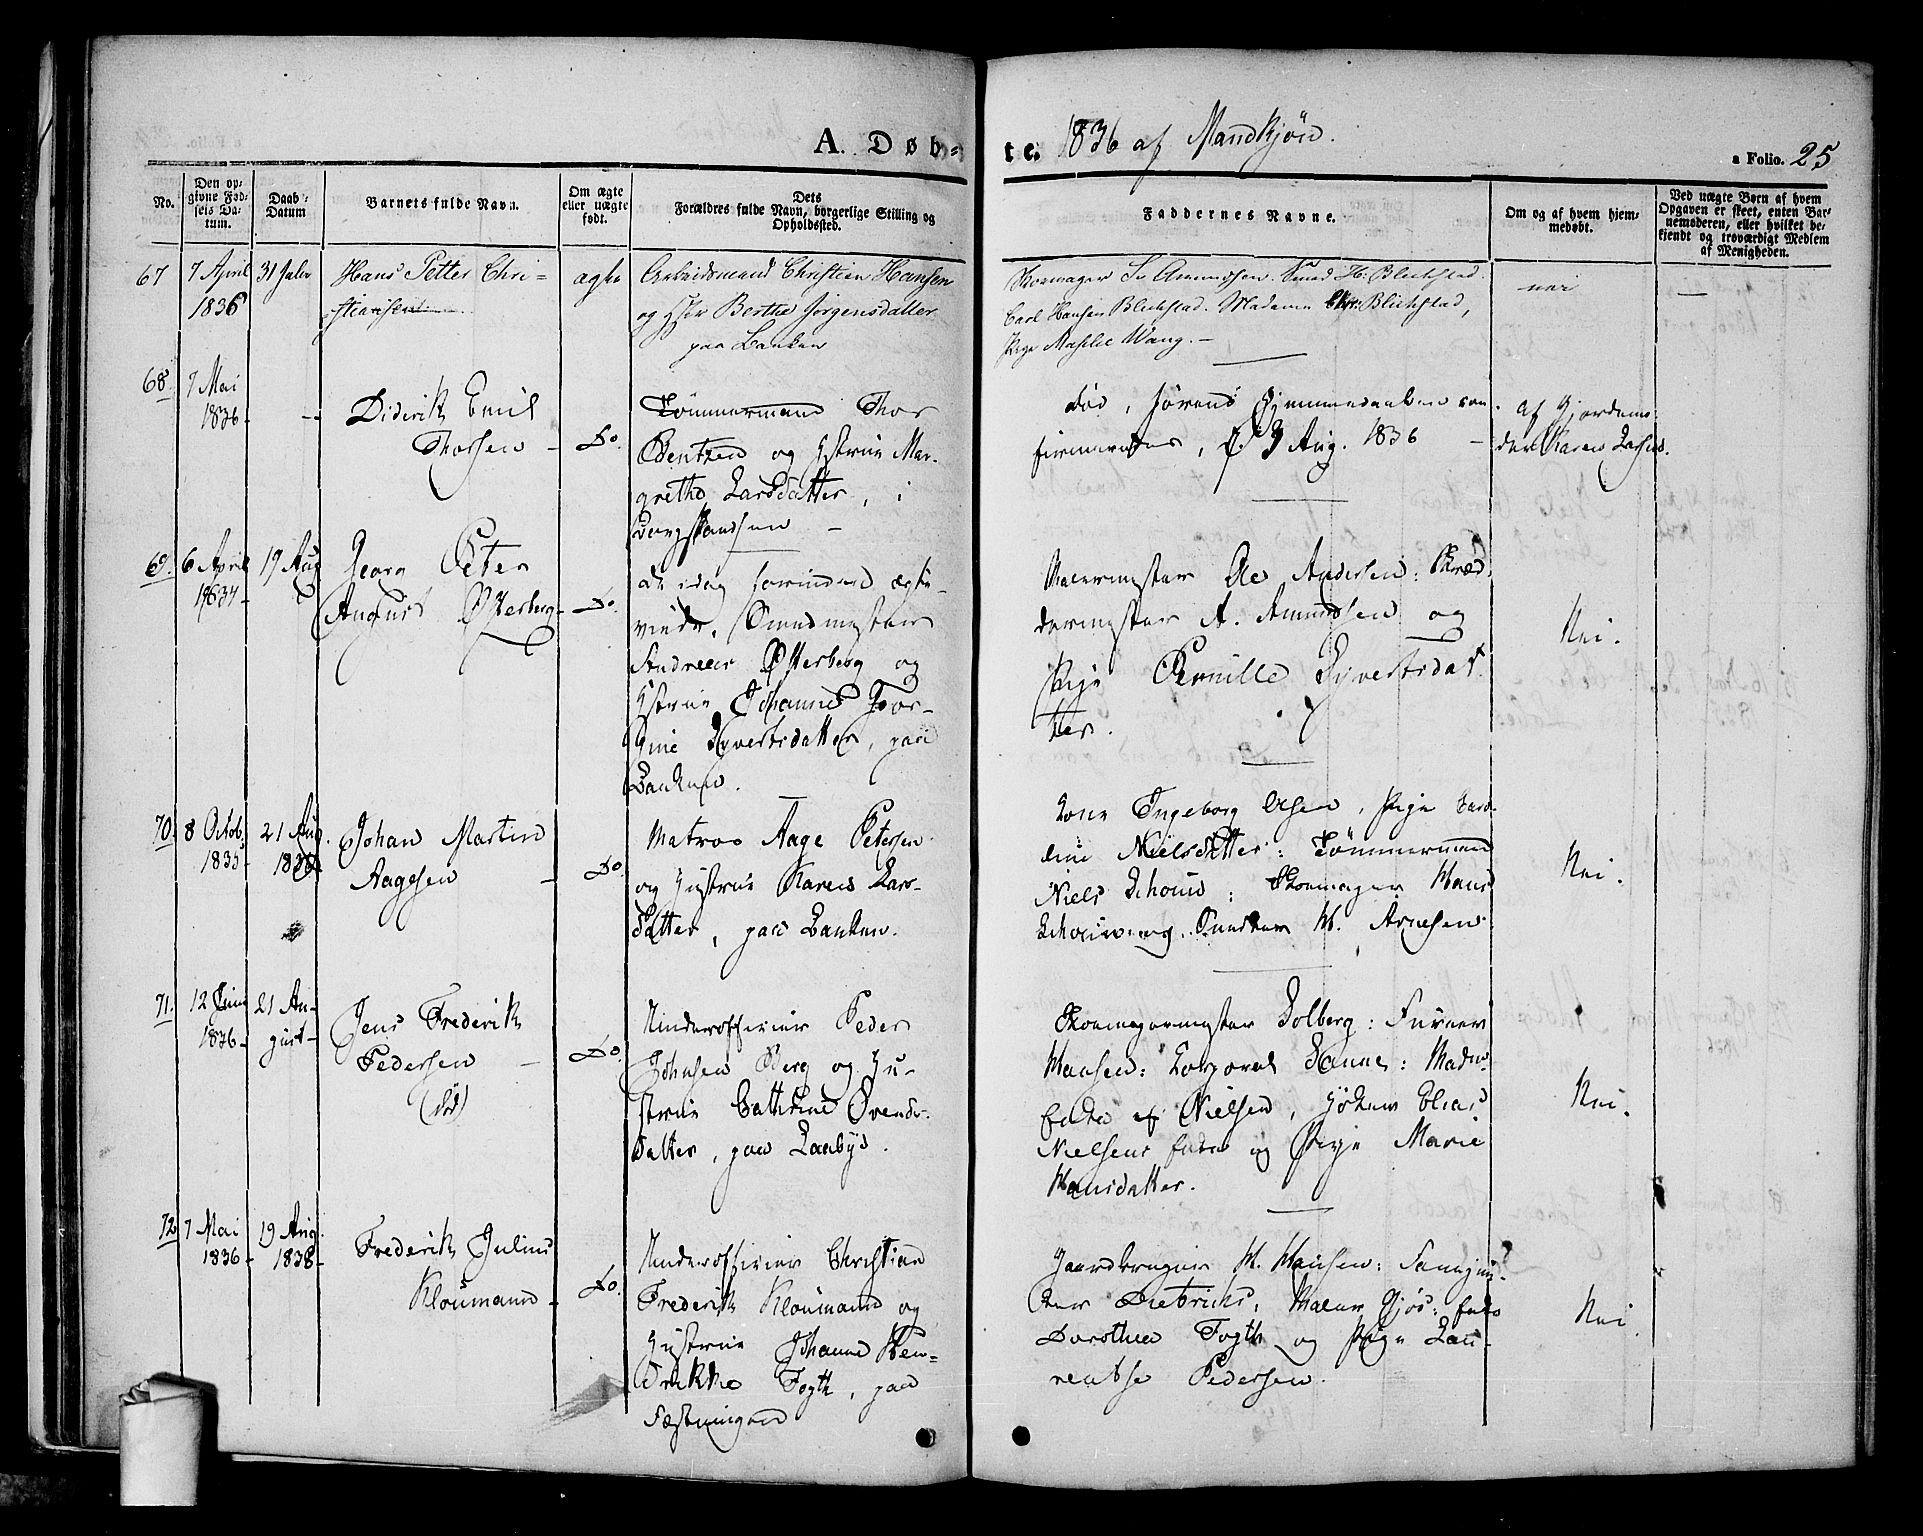 A. Døb-
te. 1836 af Mandkjøn.
a Folio. 25
No.
Den opgivne Fødsels Datum.
Daabs Datum
Barnets fulde Navn.
Om ægte eller uægte født.
Dets Forældres fulde Navn, borgerlige Stilling og Opholdssted.
Faddernes Navne.
Om og af hvem hjemmedøbt.
Ved uægte Børn af hvem Opgaven er skeet, enten Barnemoderen, eller hvilket bekjendt og troværdigt Medlem af Menigheden.
67
7 April
1836
31 Julii
Hans Petter Chri-
stiansen
ægte
Arbeidsmand Christian Hansen
og Hstr Berthe Jørgensdatter
paa Banken
Skomager Amundsen. H. Blichstad
Carl Hansen Blichstad. Madame Blichstad,
Pige Wang. –
nei
—
68.
7 Mai
1836-
Diderik Emil
Thorsen –
Do.
Tømmermand Thor
Bentzen og Hstrue Mar-
grethe Larsdatter, i
død, førend Hjemmedaaben con-
firmeredes, d. 3 Aug. 1836 –
af Gjordemo-
der Karen
69.
6 April
1834-
19 Aug
Georg Peter
August Østerberg-
Do.
de idag forinden ægte-
viede, Smedmester
Andreas Østerberg og
Hstrue Johanne Jør-
gine Syvertsdatter, paa
Banken.
Malermester Ole Andersen: Skræd-
dermester A. Amundsen og
Pige Pernille Syvertsdat-
ter.
Nei.
70.
8 Octob.
1835-
21 Aug.
1836.
Johan Martin
Aagesen –
Do.
Matros Aage Petersen
og Hustrue Karen Lars-
datter, paa Banken.
Kone Ingeborg Olsen, Pige Karo-
line Nielsdatter: Tømmermand
Niels Schou: Skomager Hans
Schou og Snedker H. Arnesen
Nei.
71.
12 Juni
1836-
21 Au-
gust-
Jens Frederik
Pedersen –
(død)
Do.
Underofficier Peder
Johnsen Berg og Hu-
strue Cathrine Svends-
datter, paaLadbyd.
Skomagermester Solberg: Fureer
Hansen: Corporal Hanne: Made.
Enke af Nielsen, Høker Elias
Nielsens Enke og Pige Marie
Hansdatter.
Nei.
72
7 Mai
1836-
19 Aug.
1838-
Frederik Julius
Kloumann –
Do.
Underofficier Christian
Frederik Kloumann og
Hustrue Johanne Hen-
drikke Fogth, paa
Fæstningen
Gaardbruger H. Hansen: Sergian-
ter Diedrichs, Maler Gjøs: Enke
Dorothea Fogth og Pige Lau-
rentse Pedersen.
Nei